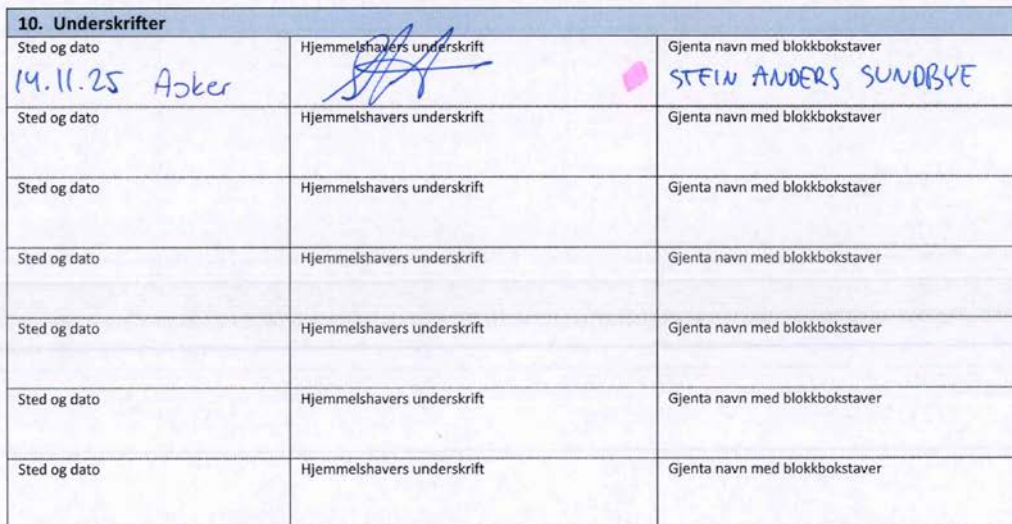 10. Underskrifter
Sted og dato Hjemmelshavers underskrift Gjenta navn med blokkbokstaver
14.11.25 Asker STEIN ANDERS SUNDBYE
Sted og dato Hjemmelshavers underskrift Gjenta navn med blokkbokstaver
Sted og dato Hjemmelshavers underskrift Gjenta navn med blokkbokstaver
Sted og dato Hjemmelshavers underskrift Gjenta navn med blokkbokstaver
Sted og dato Hjemmelshavers underskrift Gjenta navn med blokkbokstaver
Sted og dato Hjemmelshavers underskrift Gjenta navn med blokkbokstaver
Sted og dato Hjemmelshavers underskrift Gjenta navn med blokkbokstaver